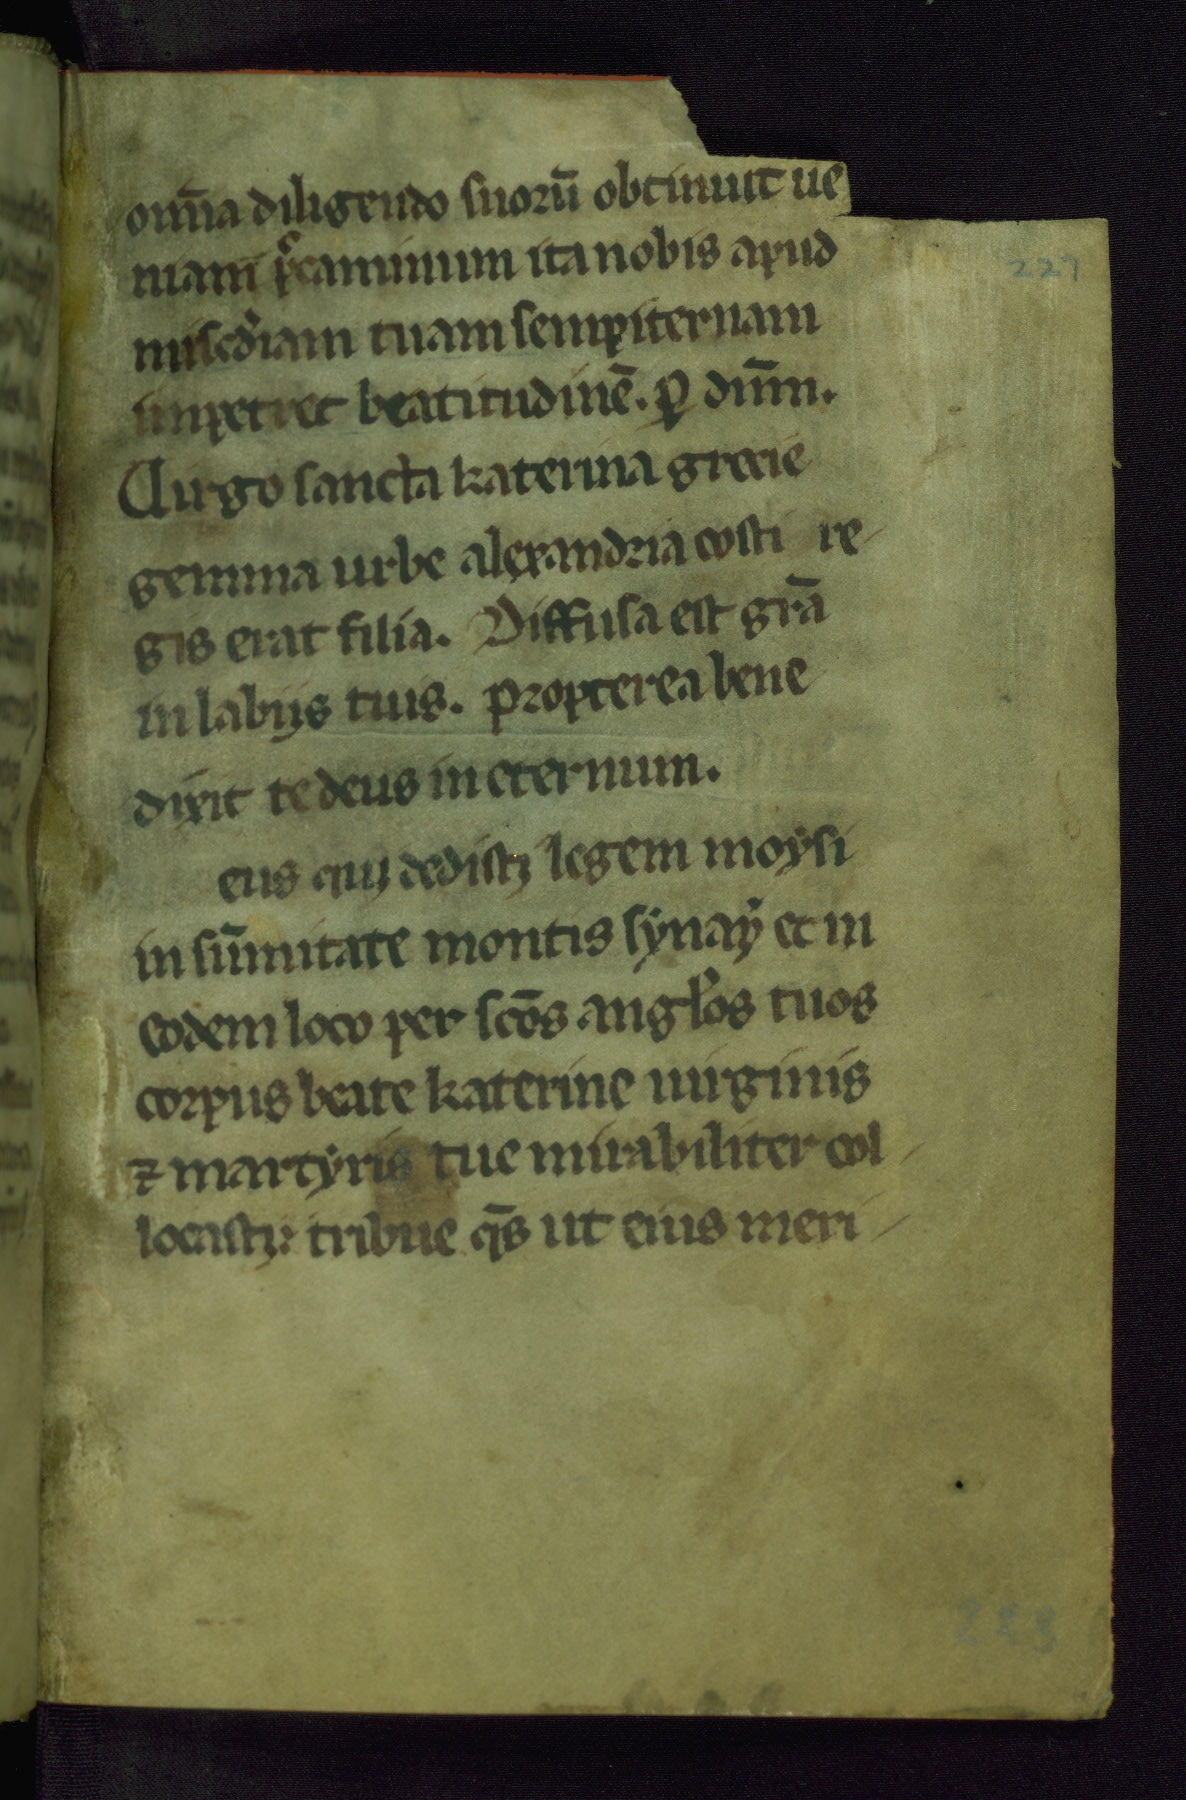 227
om̄ia diligendo suorū obtinuit ue
niam p̄caminum ita nobis apud
miscđiam tuam sempiternam
impetret beatitudinē. P̱ dn̄m.
Uirgo sancta katerina grecie
gemma urbe alexandria costi re
gis erat filia. Diffusa est gr̄a
in labijs tuis. propterea bene
dixit te deus in eternum.
eus qui dedisti legem moẏsi
in sūmitate montis sẏnaẏ et in
eodem loco per sc̄os anglos tuos
corpus beate katerine uirginis
⁊ martẏris tue mirabiliter col
locasti: tribue qs̄ ut eius meri